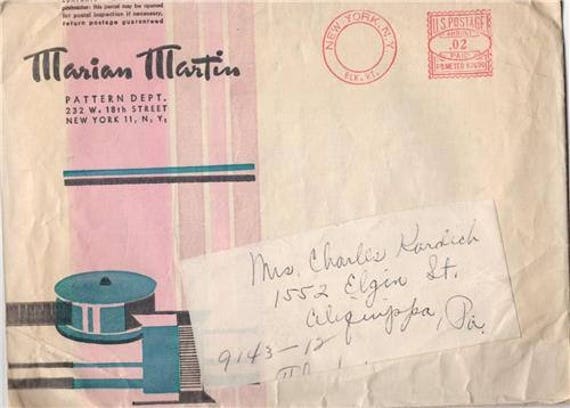 postmaster: this parcel may be opened
for postal inspection if necessary,
return postage guaranteed
Marian Martin
PATTERN DEPT.
232 W. 18th STREET
NEW YORK 11, N. Y.
NEW YORK, N.Y.
BLK. RT.
U.S. POSTAGE
.02
PAID
Mrs. Charles Kardich
1552 Elgin St.
Aliquippa, Pa.
9143-12